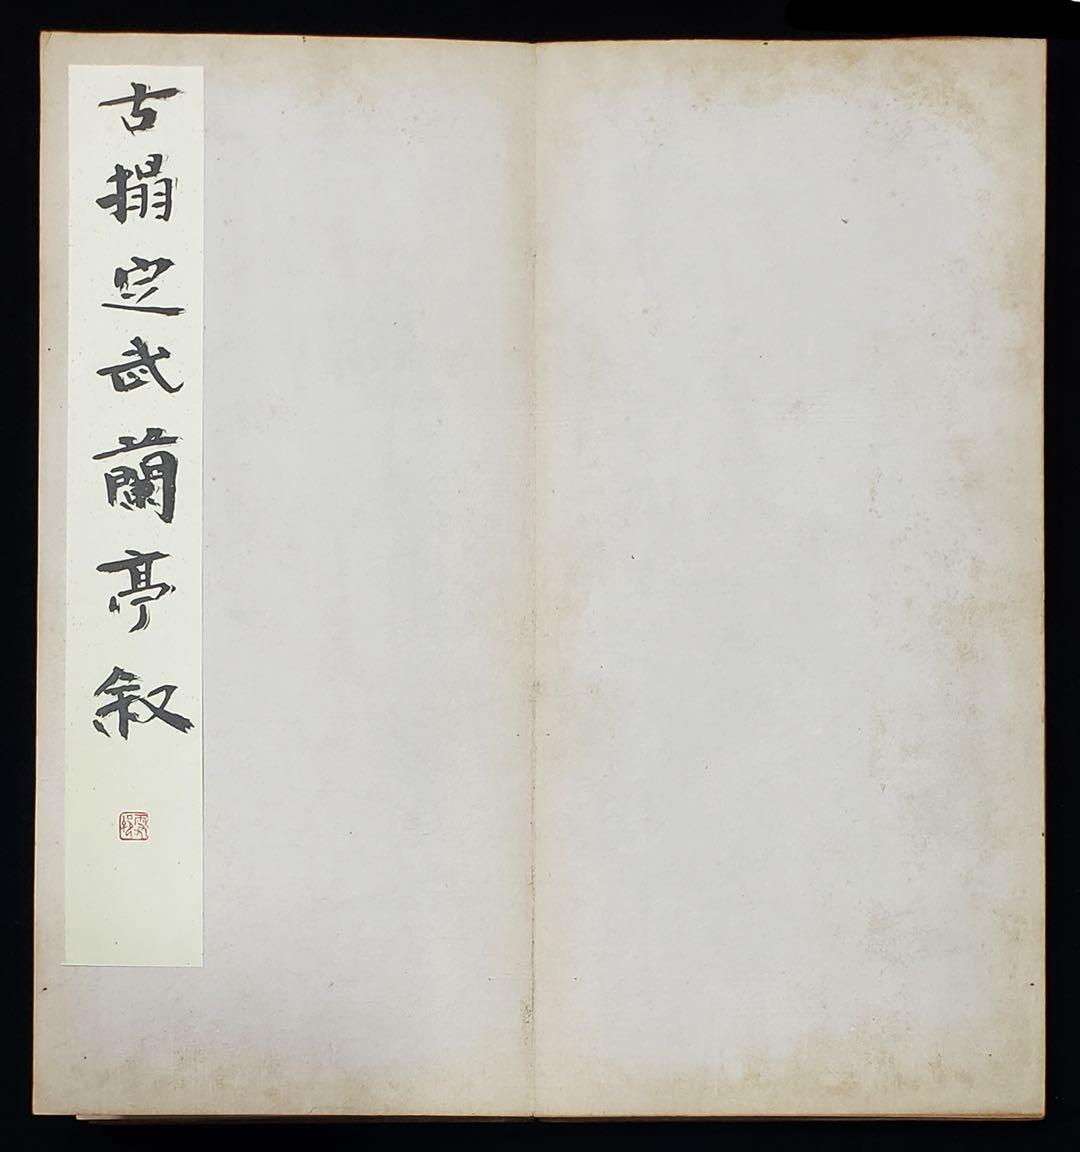 古搨定武蘭亭叙